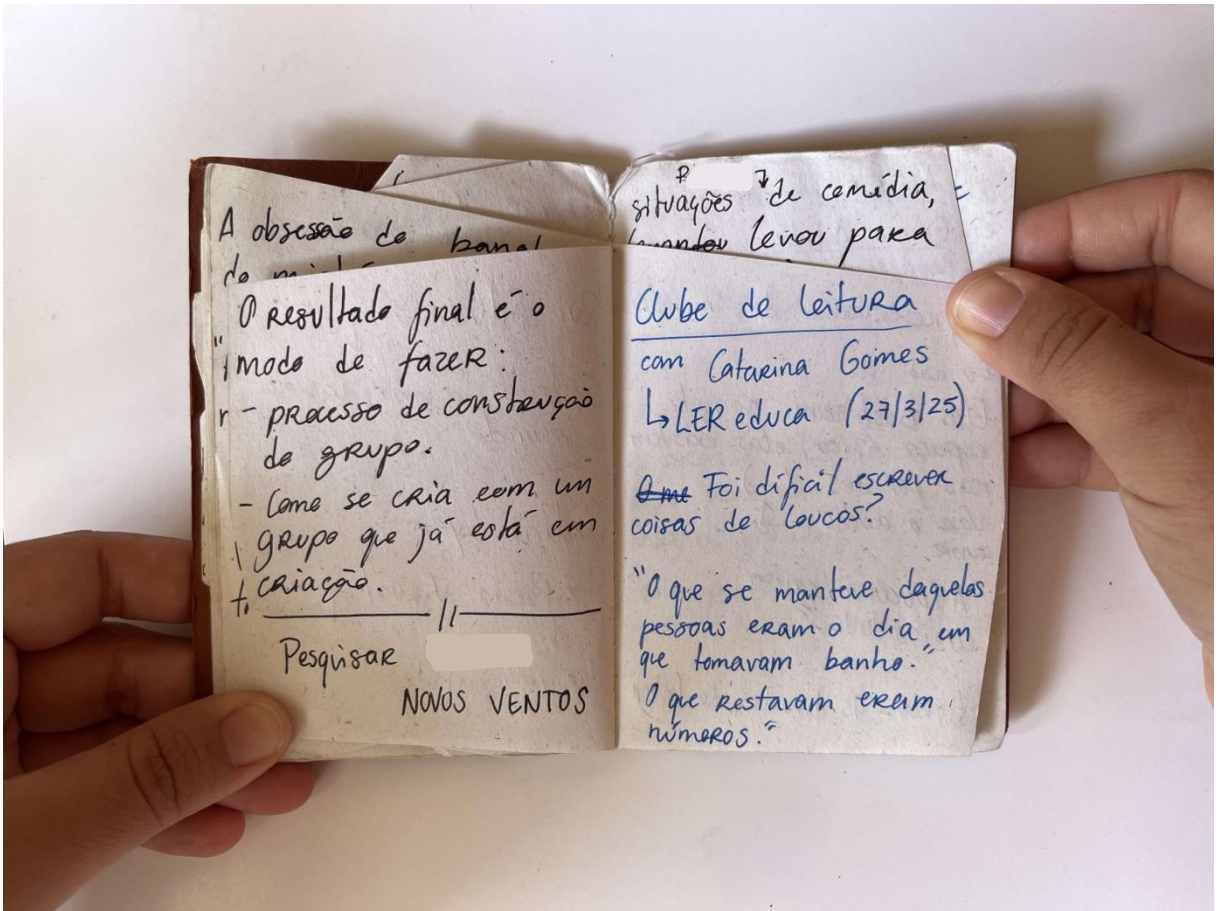 A obsessão do banal
O resultado final é o
modo de fazer:
- processo de construção
de grupo.
- Como se cria com um
grupo que já está em
criação.
Pesquisar
NOVOS VENTOS
situações de comédia,
levou para
Clube de leitura
com Catarina Gomes
↳ LER educa (27/3/25)
Foi difícil escrever
coisas de loucos?
"O que se manteve daquelas
pessoas eram o dia em
que tomavam banho."
O que restavam eram
números."